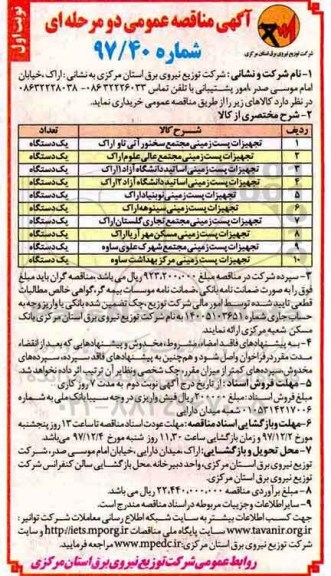 نوبت اول
آگهی مناقصه عمومی دو مرحله ای
شماره ۹۷/۴۰
شرکت توزیع نیروی برق استان مرکزی
۱- نام شرکت و نشانی: شرکت توزیع نیروی برق استان مرکزی به نشانی: اراک، خیابان
امام موسی صدر، امور پشتیبانی با تلفن تماس ۳۲۲۲۶۰۳۳-۰۸۶ - ۰۸۶۳۲۲۲۸۰۳۸
در نظر دارد کالاهای زیر را از طریق مناقصه عمومی خریداری نماید.
۲- شرح مختصری از کالا
ردیف شرح کالا تعداد
۱ تجهیزات پست زمینی مجتمع سخنور آنی تاور اراک یک دستگاه
۲ تجهیزات پست زمینی مجتمع عالی علوم اراک یک دستگاه
۳ تجهیزات پست زمینی اساتید دانشگاه آزاد ۱ اراک یک دستگاه
۴ تجهیزات پست زمینی اساتید دانشگاه آزاد ۲ اراک یک دستگاه
۵ تجهیزات پست زمینی نوبنیاد اراک یک دستگاه
۶ تجهیزات پست زمینی سینو هما اراک یک دستگاه
۷ تجهیزات پست زمینی مجتمع تجاری گلستان اراک یک دستگاه
۸ تجهیزات پست زمینی مسکن مهر آریا اراک یک دستگاه
۹ تجهیزات پست زمینی مجتمع شهرک علوی ساوه یک دستگاه
۱۰ تجهیزات پست زمینی مرکز بهداشت ساوه یک دستگاه
۳- سپرده شرکت در مناقصه مبلغ ۹۲۳،۲۰۰،۰۰۰ ریال می باشد، مناقصه گران باید مبلغ
فوق را به صورت ضمانت نامه بانکی، ضمانت نامه موسسات بیمه گر، گواهی خالص مطالبات
قطعی تایید شده توسط امور مالی شرکت توزیع، چک تضمین شده بانکی یا واریز وجه به
حساب جاری شماره ۱۴۰۰۵۱۰۳۶۵۱ به نام شرکت توزیع نیروی برق استان مرکزی بانک
مسکن شعبه مرکزی ارائه نمایند.
۴- به پیشنهادهای فاقد امضاء، مشروط، مخدوش و پیشنهادهایی که بعد از انقضاء
مدت مقرر در فراخوان واصل شود و هم چنین به پیشنهادهای فاقد سپرده، سپرده های
مخدوش، سپرده های کمتر از میزان مقرر، چک شخصی و نظایر آن ترتیب اثر داده نخواهد شد.
۵- مهلت فروش اسناد: از تاریخ درج آگهی نوبت دوم به مدت ۷ روز کاری
مبلغ فروش اسناد: مبلغ ۳۰۰،۰۰۰ ریال فیش واریزی در وجه سیبا بانک ملی به شماره
۰۱۰۵۳۱۴۲۱۷۰۰۶ شعبه میدان دارایی
۶- مهلت و بازگشایی اسناد مناقصه: مهلت عودت اسناد مناقصه تا ساعت ۱۳ روز پنجشنبه
مورخ ۹۷/۱۲/۲ و زمان بازگشایی ساعت ۱۱،۳۰ روز شنبه مورخ ۹۷/۱۲/۴ می باشد
۷- محل تحویل و بازگشایی: اراک، میدان دارایی، خیابان امام موسی صدر، شرکت
توزیع نیروی برق استان مرکزی، واحد دبیرخانه. محل بازگشایی سالن کنفرانس شرکت
توزیع نیروی برق استان مرکزی.
۸- مبلغ برآوردی مناقصه ۲۲،۴۴۰،۰۰۰،۰۰۰ ریال می باشد.
۹- سایر اطلاعات و جزییات مربوطه در اسناد مناقصه مندرج است.
جهت کسب اطلاعات بیشتر به سایت شبکه اطلاع رسانی معاملات شرکت توانیر:
www.tavanir.org.ir سایت پایگاه ملی مناقصات http://iets.mporg.ir و سایت
شرکت توزیع نیروی برق استان مرکزی: www.mpedc.ir مراجعه فرمایید.
روابط عمومی شرکت توزیع نیروی برق استان مرکزی